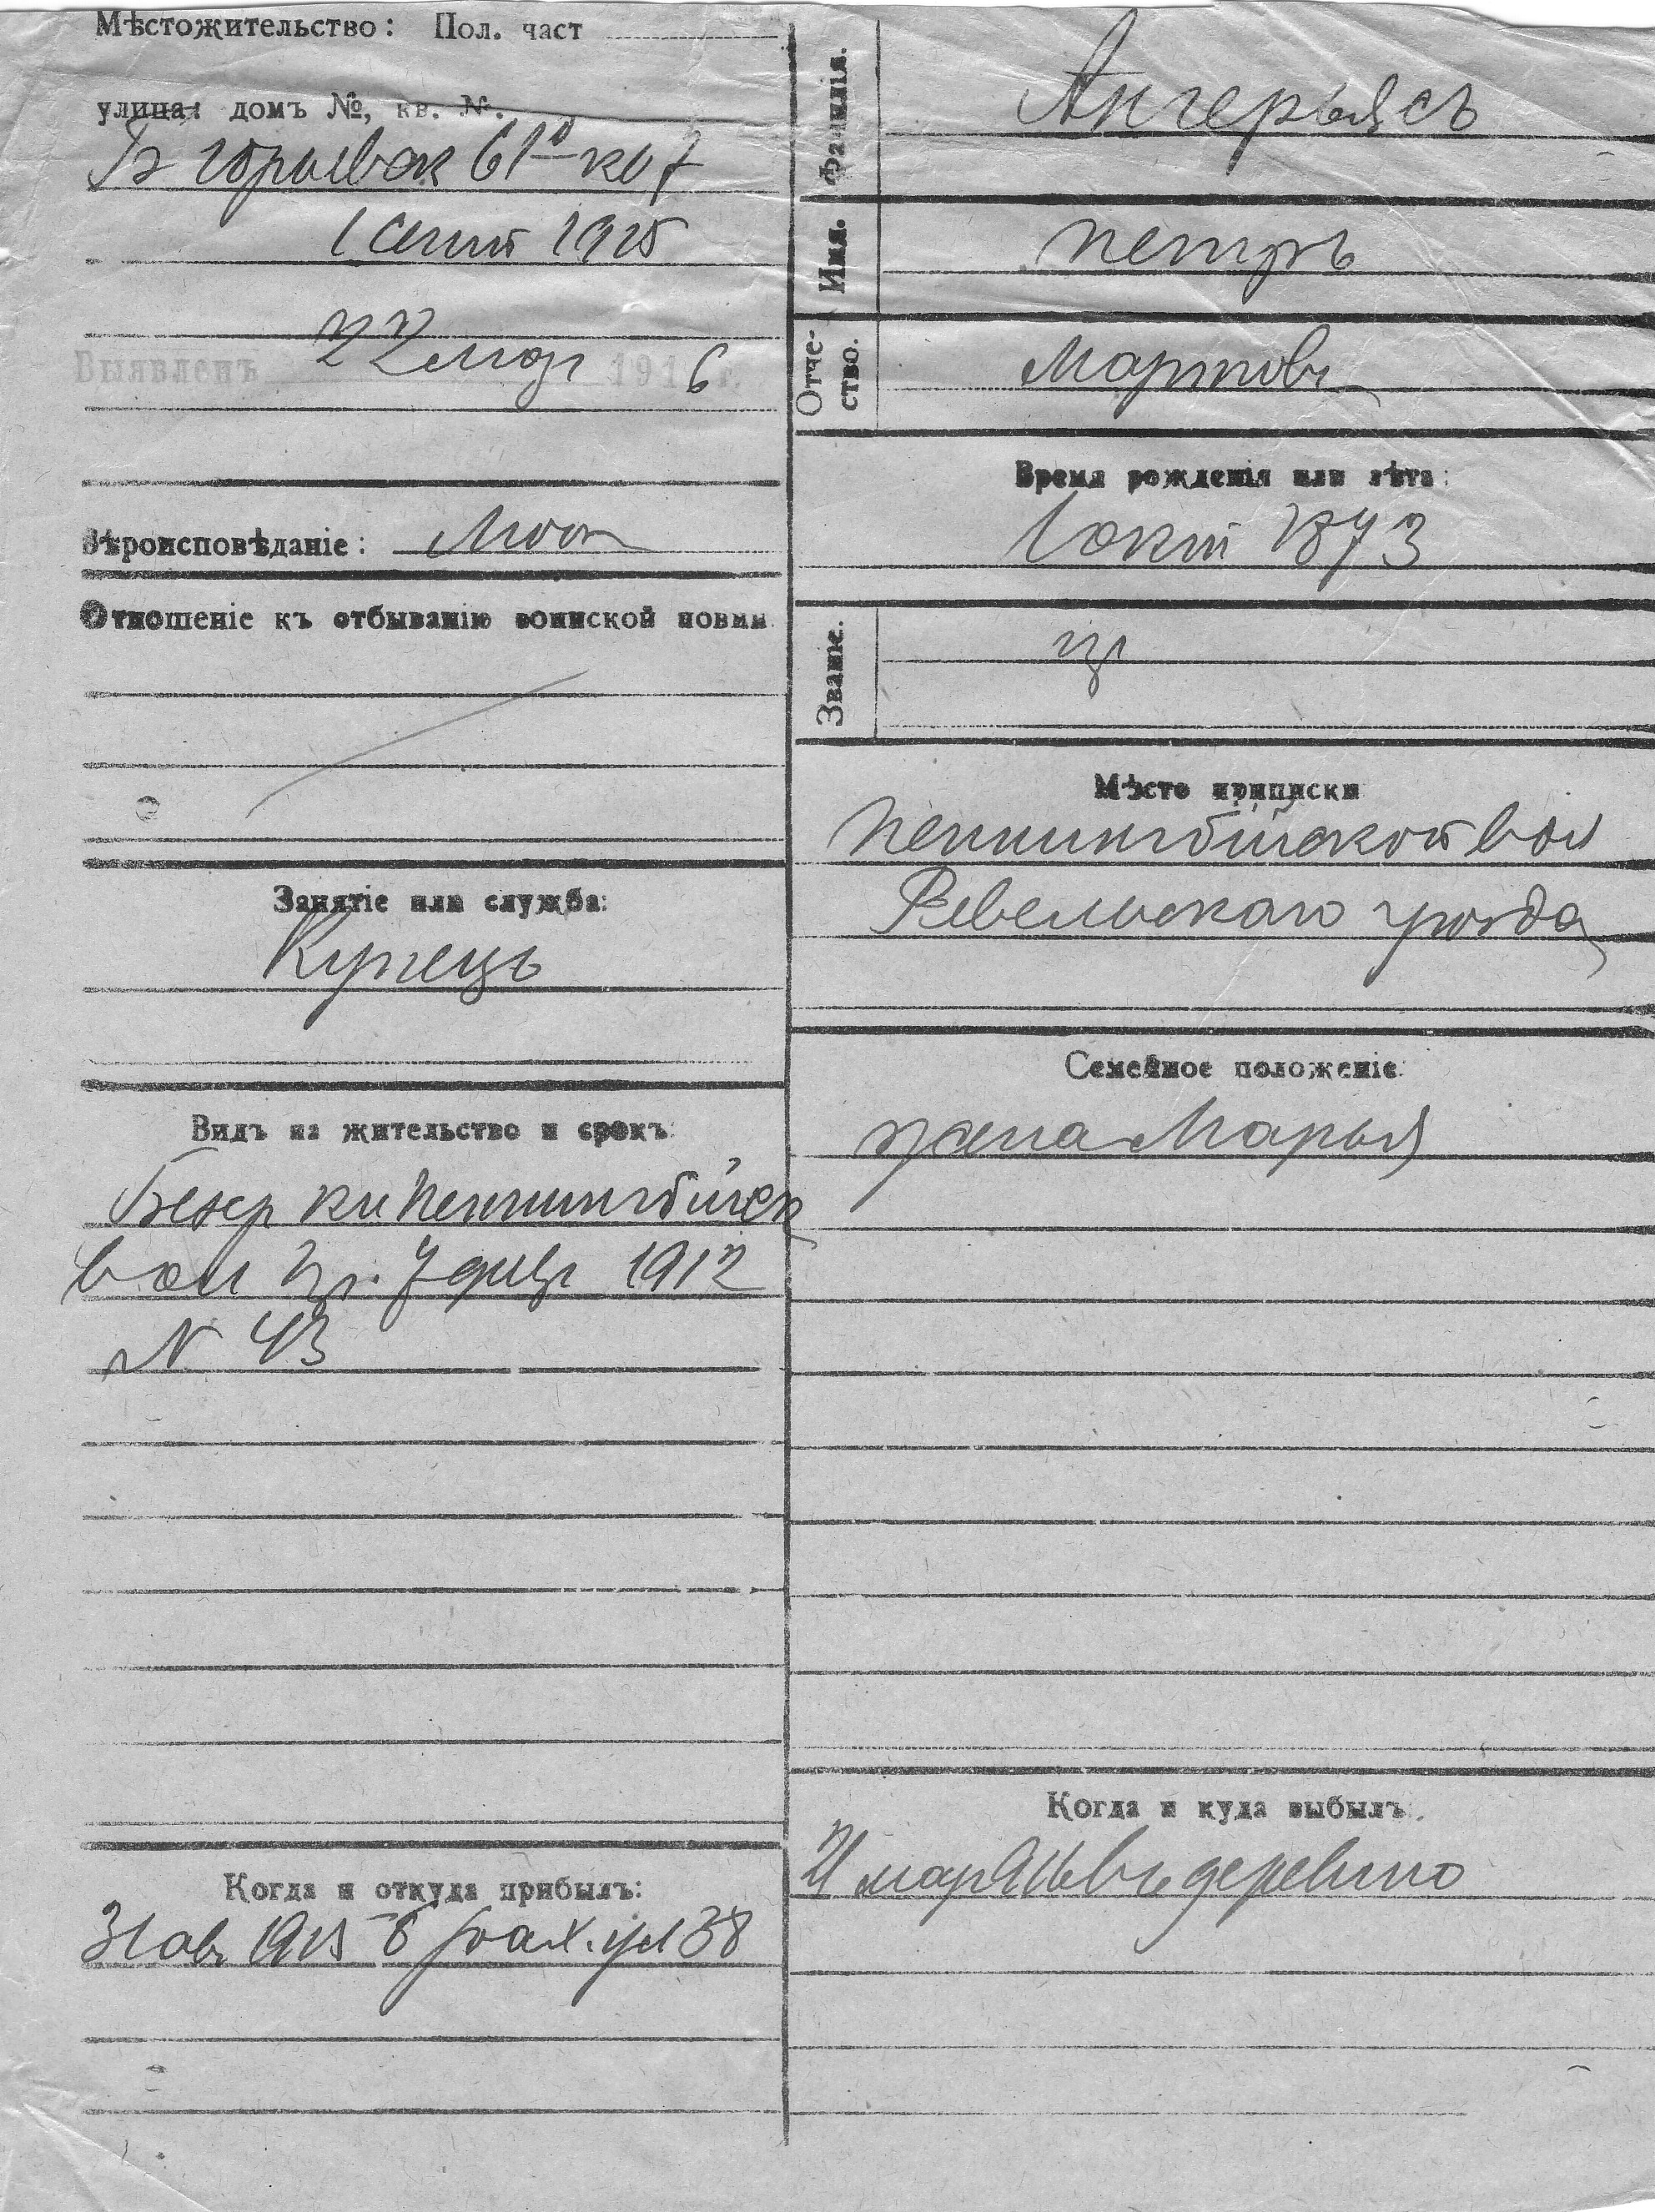 Мѣстожительство: Пол. част
улица: домъ №, кв. №.
61а кв 7
1 сент 1915
Выявленъ 22 мар 1916 г.
Вѣроисповѣданіе: Лют
Отношеніе къ отбыванію воинской повин.
Занятіе или служба:
Купецъ
Видъ на жительство и срокъ:
Безср кн Пеннингбійск
вол 7 1912
N 43
Когда и откуда прибылъ:
31 авг 1915 ул 38
Фамилія. Ангерьясъ
Имя. Петръ
Отчество. Мартовъ
Время рожденія или лѣта:
1 окт 1873
Званіе. кр
Мѣсто приписки
Пеннингбійской вол
Ревельскаго уѣзда
Семейное положеніе:
жена Марья
Когда и куда выбылъ:
21 мар въ деревню